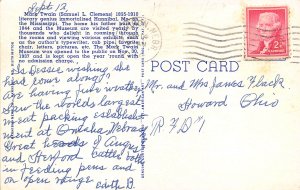 Sept 12
Mark Twain (Samuel L. Clemens) 1835-1910
literary genius immortalized Hannibal, Mo., and
the Mississippi. The house his father built in
1844 and the Museum are visited yearly by
thousands who delight in roaming through
the rooms and viewing various exhibits such
as the author's typewriter, cub pipe, favorite
chair, letters, pictures, etc. The Mark Twain
Museum was opened to the public on Nov. 30,
and is kept open the year 'round with
no admission charge.
POST CARD
2¢
Bessie wishing she
had come along?
are having fine weather
Saw the worlds largest
meat packing establish
ment at Omaha, Nebraska
Great herds of Angus
and Hereford cattle both
in feeding pens and
on open range
Edith B.
Mr. and Mrs James Flack
Howard Ohio
R F D 1